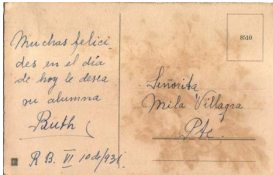 Muchas felici-
des en el día
de hoy le desea
su alumna
Ruth
R. B. VI 10 de/931
8510
Señorita
Mila Villagra
Pte.